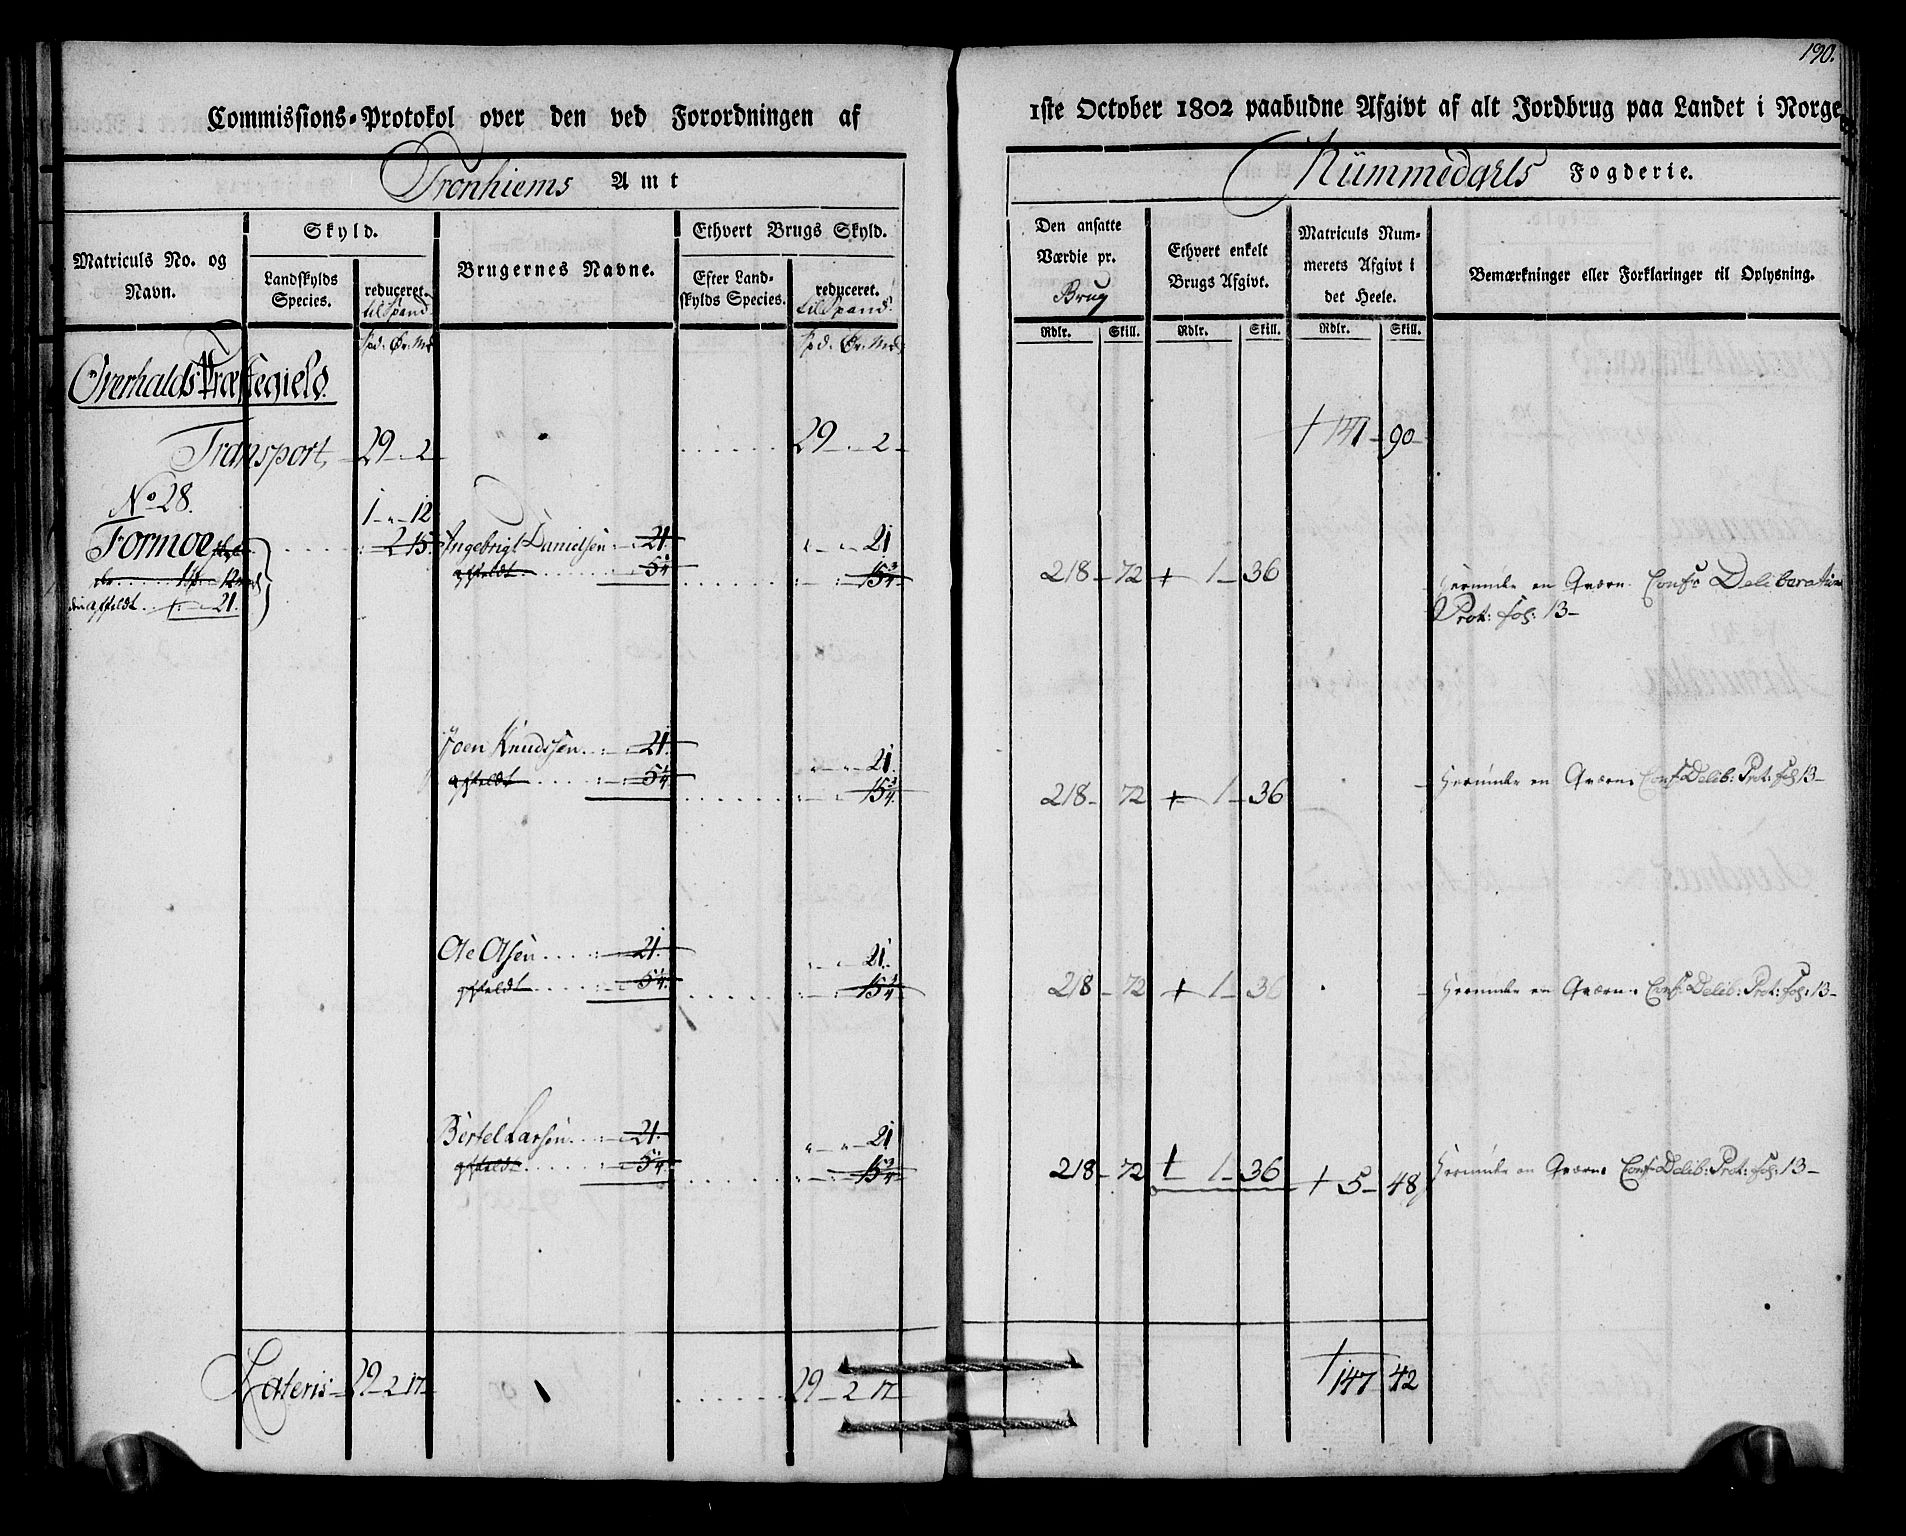 190.
Commissions-Protokol over den ved Forordningen af
1ste October 1802 paabudne Afgivt af alt Jordbrug paa Landet i Norge
Tronhiems Amt
Nümmedahls Fogderie.
Matriculs No. og Navn.
Skyld.
Landskylds Species.
reduceret.
til Spand
Brugernes Navne.
Ethvert Brugs Skyld.
Efter Landskylds Species.
reduceret.
til Spand.
Den ansatte Værdie pr.
Brug
Ethvert enkelt Brugs Afgivt.
Matriculs Nummerets Afgivt i det Heele.
Bemærkninger eller Forklaringer til Oplysning.
Rdlr. Skill. Rdlr. Skill. Rdlr. Skill.
Spd. Ør. Ml
Spd. Ør. Ml
Overhalds Præstegield.
Transport, 29 - 2 29 - 2 - + 141 - 90 -
No 28.
1 - " - 12
Formoe
2 15
Ingebrigt Danielsen 21 " - " - 21
affældt 5¼ 15¾ 218 - 72 + 1 - 36 Herunder en Qværn. Conf: Deliberation
12
affeldt 21. Prot: fol: 13 -
Joen Knudssen 21 " - " - 21
affeldt 5¼ 15¾ 218 - 72 + 1 - 36 Herunder en Qværn Conf Delib: Prot: fol 13 -
Ole Olsen 21 " - " - 21
affeldt 5¼ 15¾ 218 - 72 + 1 - 36 Herunder en Qværn. Conf: Delib: Prot: fol: 13 -
Bertel Larsen 21 " - " - 21
affeldt 5¼ 15¾ 218 - 72 + 1 - 36 + 5 - 48 Herunder en Qværn Conf Delib: Prot: fol: 13 -
Lateris 29 - 2 17 29 - 2 17 - + 147 - 42